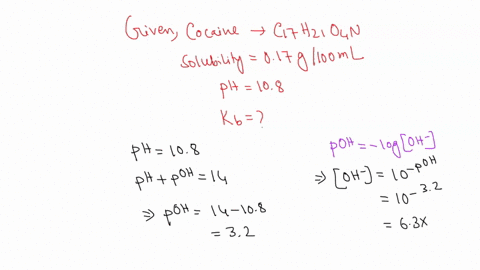 Given, Cocaine → C17H21O4N
Solubility = 0.17 g/100mL
pH = 10.8
Kb = ?
pH = 10.8
pH + pOH = 14
⇒ pOH = 14-10.8
= 3.2
pOH = -log[OH-]
⇒ [OH-] = 10-pOH
= 10-3.2
= 6.3x